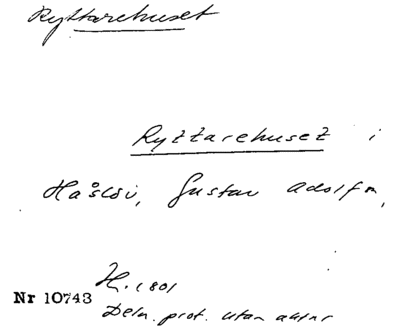 Ryttarehuset
Ryttarehuset i
Håslöv, Gustav Adolf m,
H. 1801
Nr 10743
Deln. prot. utan aktnr